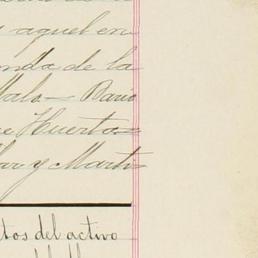 aquel en
nda de la
Malo — Bario
e Huerta —
y Marti-
tos del activo